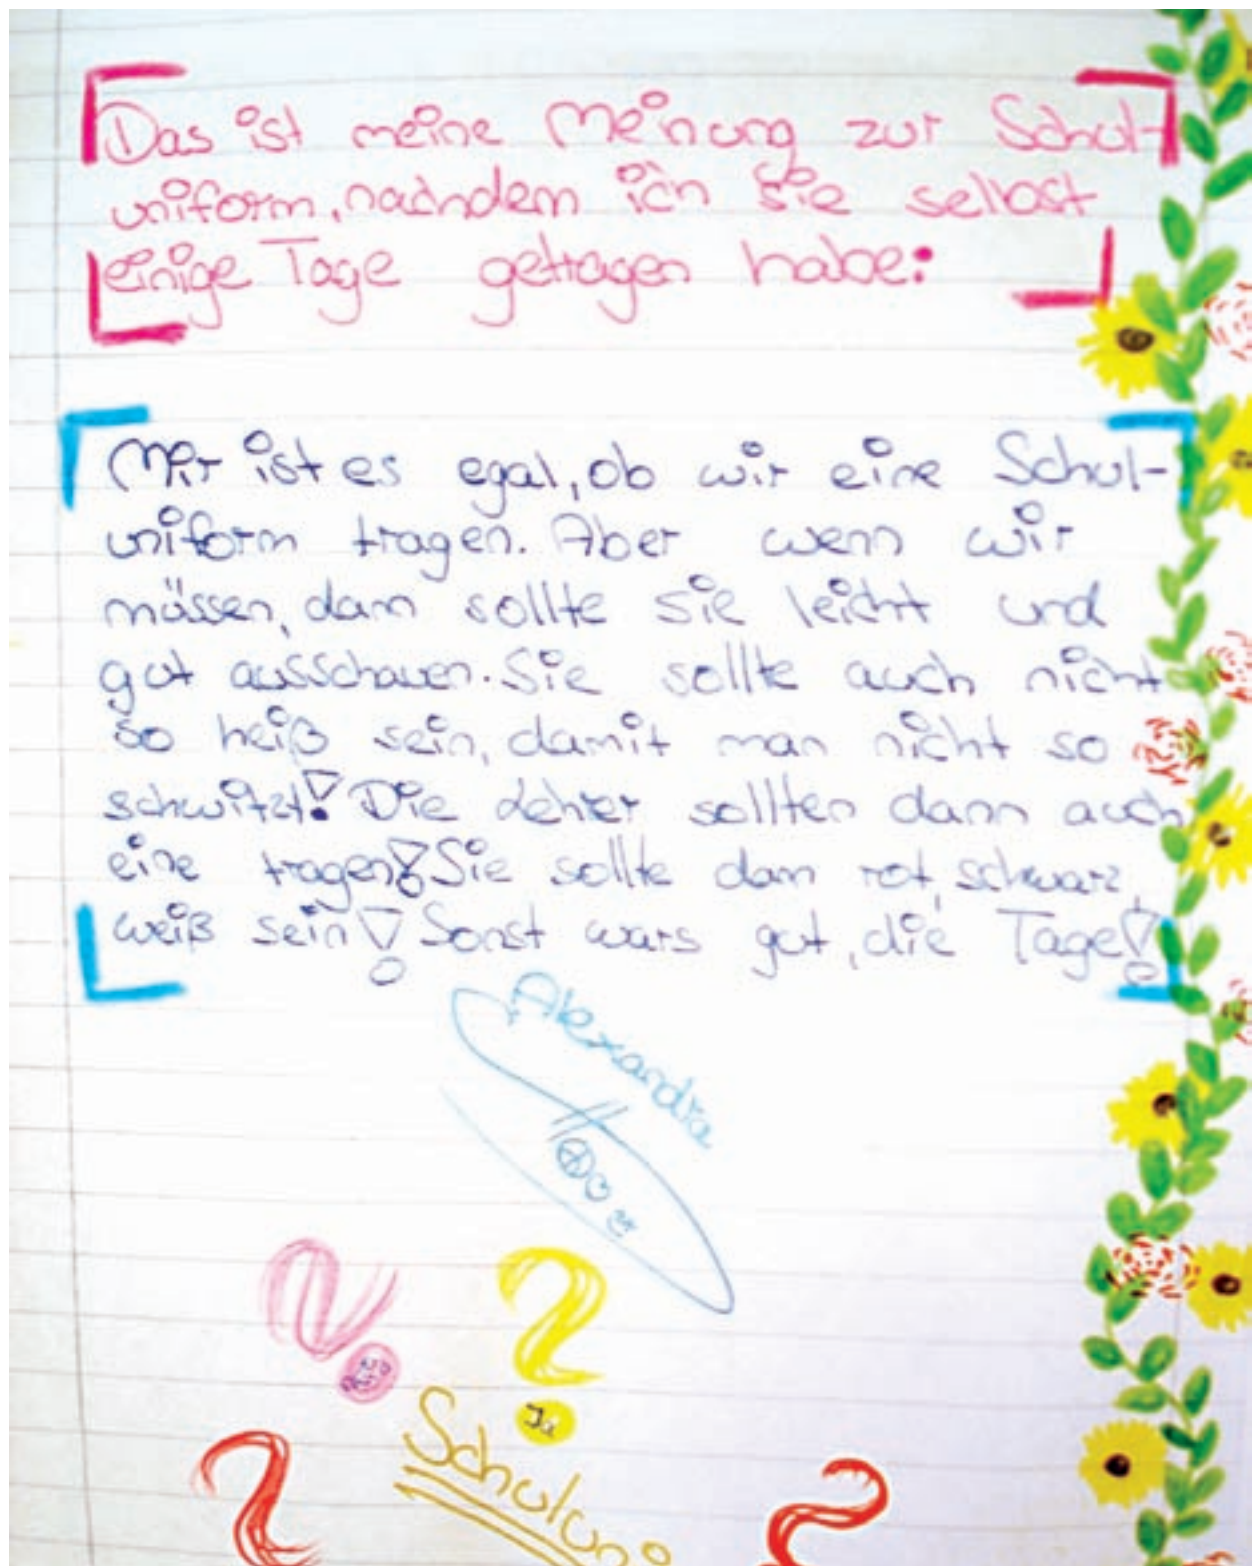 Das ist meine Meinung zur Schul-
uniform, nachdem ich sie selbst
einige Tage getragen habe:
Mir ist es egal, ob wir eine Schul-
uniform tragen. Aber wenn wir
müssen, dann sollte sie leicht und
gut ausschauen. Sie sollte auch nicht
so heiß sein, damit man nicht so
schwitzt! Die Lehrer sollten dann auch
eine tragen! Sie sollte dann rot, schwarz,
weiß sein! Sonst wars gut, die Tage!
Alexandra
Ja
Schuluni